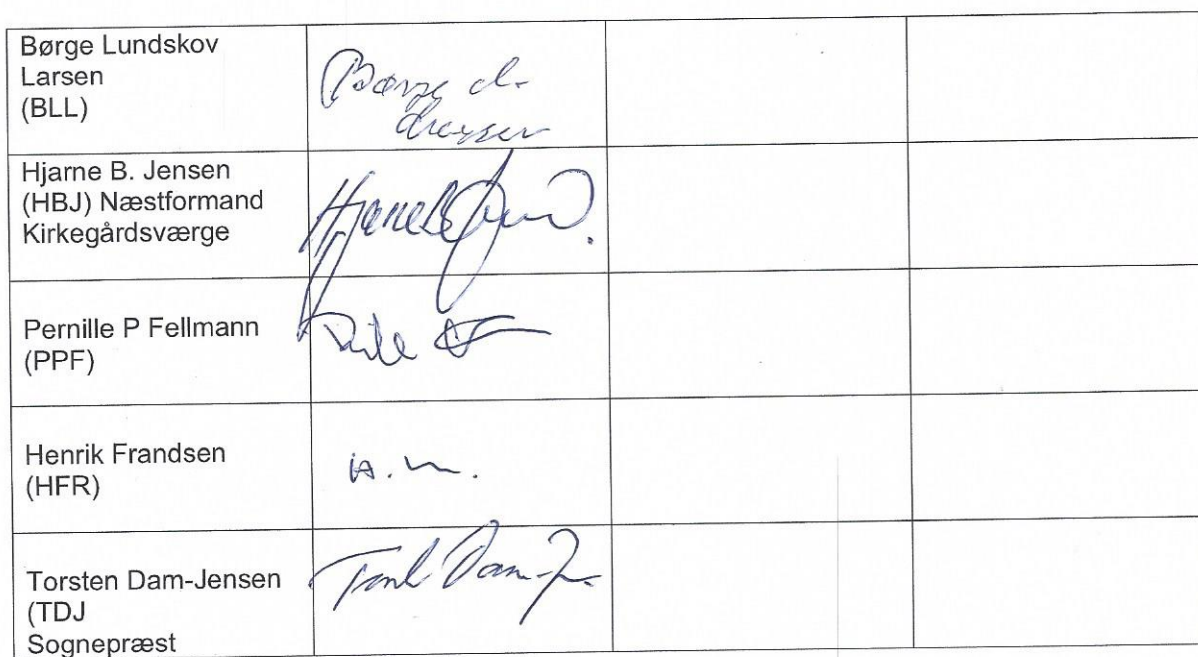 Børge Lundskov
Larsen
(BLL)
Børge L.
Larsen
Hjarne B. Jensen
(HBJ) Næstformand
Kirkegårdsværge
Hjarne B Jensen.
Pernille P Fellmann
(PPF)
Henrik Frandsen
(HFR)
Torsten Dam-Jensen
(TDJ
Sognepræst